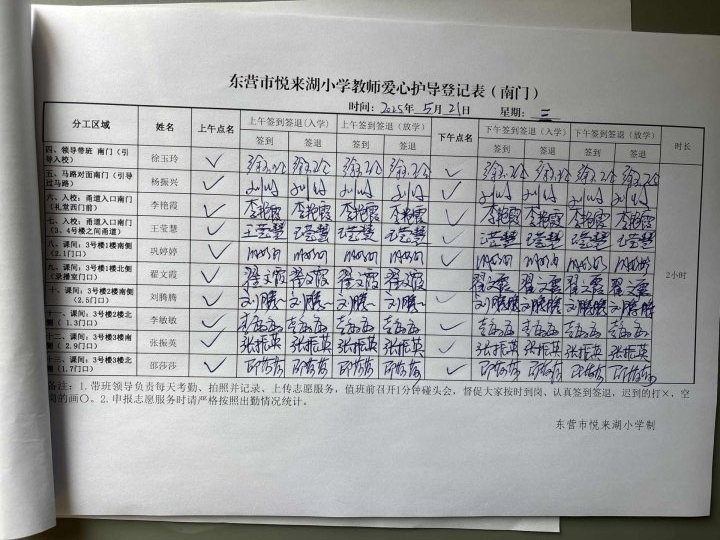 东营市悦来湖小学教师爱心护导登记表（南门）
时间：2025年 5月 21日 星期：三
分工区域 姓名 上午点名 上午签到签退(入学) 上午签到签退（放学） 下午点名 下午签到签退（入学） 下午签到签退（放学） 时长
签到 签退 签到 签退 签到 签退 签到 签退
四、领导带班 南门（引导入校） 徐玉玲 ✓ 徐玉玲 徐玉玲 徐玉玲 徐玉玲 ✓ 徐玉玲 徐玉玲 徐玉玲 徐玉玲
五、马路对面南门（引导过马路） 杨振兴 ✓ ✓
六、入校：甬道入口南门（礼堂西门前） 李艳霞 ✓ 李艳霞 李艳霞 李艳霞 李艳霞 ✓ 李艳霞 李艳霞 李艳霞 李艳霞
七、入校：甬道入口南门（3、4号楼之间甬道） 王莹慧 ✓ 王莹慧 王莹慧 王莹慧 王莹慧 ✓ 王莹慧 王莹慧 王莹慧 王莹慧
八、课间：3号楼1楼南侧（2.1门口） 巩婷婷 ✓ ✓
九、课间：3号楼1楼北侧（录播室门口） 翟文霞 ✓ 翟文霞 翟文霞 翟文霞 翟文霞 ✓ 翟文霞 翟文霞 翟文霞 翟文霞
十、课间：3号楼2楼南侧（2.5门口） 刘腾腾 ✓ 刘腾腾 刘腾腾 刘腾腾 刘腾腾 ✓ 刘腾腾 刘腾腾 刘腾腾 刘腾腾
十一、课间：3号楼2楼北侧（ 1.3门口） 李敏敏 ✓ 李敏敏 李敏敏 李敏敏 李敏敏 ✓ 李敏敏 李敏敏 李敏敏 李敏敏
十二、课间：3号楼3楼南侧（ 2.9门口） 张振英 ✓ 张振英 张振英 张振英 张振英 ✓ 张振英 张振英 张振英 张振英
十三、课间：3号楼3楼北侧（1.7门口） 邵莎莎 ✓ 邵莎莎 邵莎莎 邵莎莎 邵莎莎 ✓ 邵莎莎 邵莎莎 邵莎莎 邵莎莎
2小时
备注：1.带班领导负责每天考勤、拍照并记录、上传志愿服务，值班前召开1分钟碰头会，督促大家按时到岗、认真签到签退，迟到的打×，空
岗的画〇。2.申报志愿服务时请严格按照出勤情况统计。
东营市悦来湖小学制